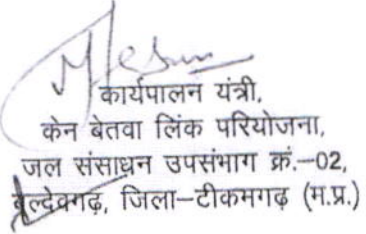 कार्यपालन यंत्री,
केन बेतवा लिंक परियोजना,
जल संसाधन उपसंभाग क्रं.–02,
बल्देवगढ़, जिला–टीकमगढ़ (म.प्र.)